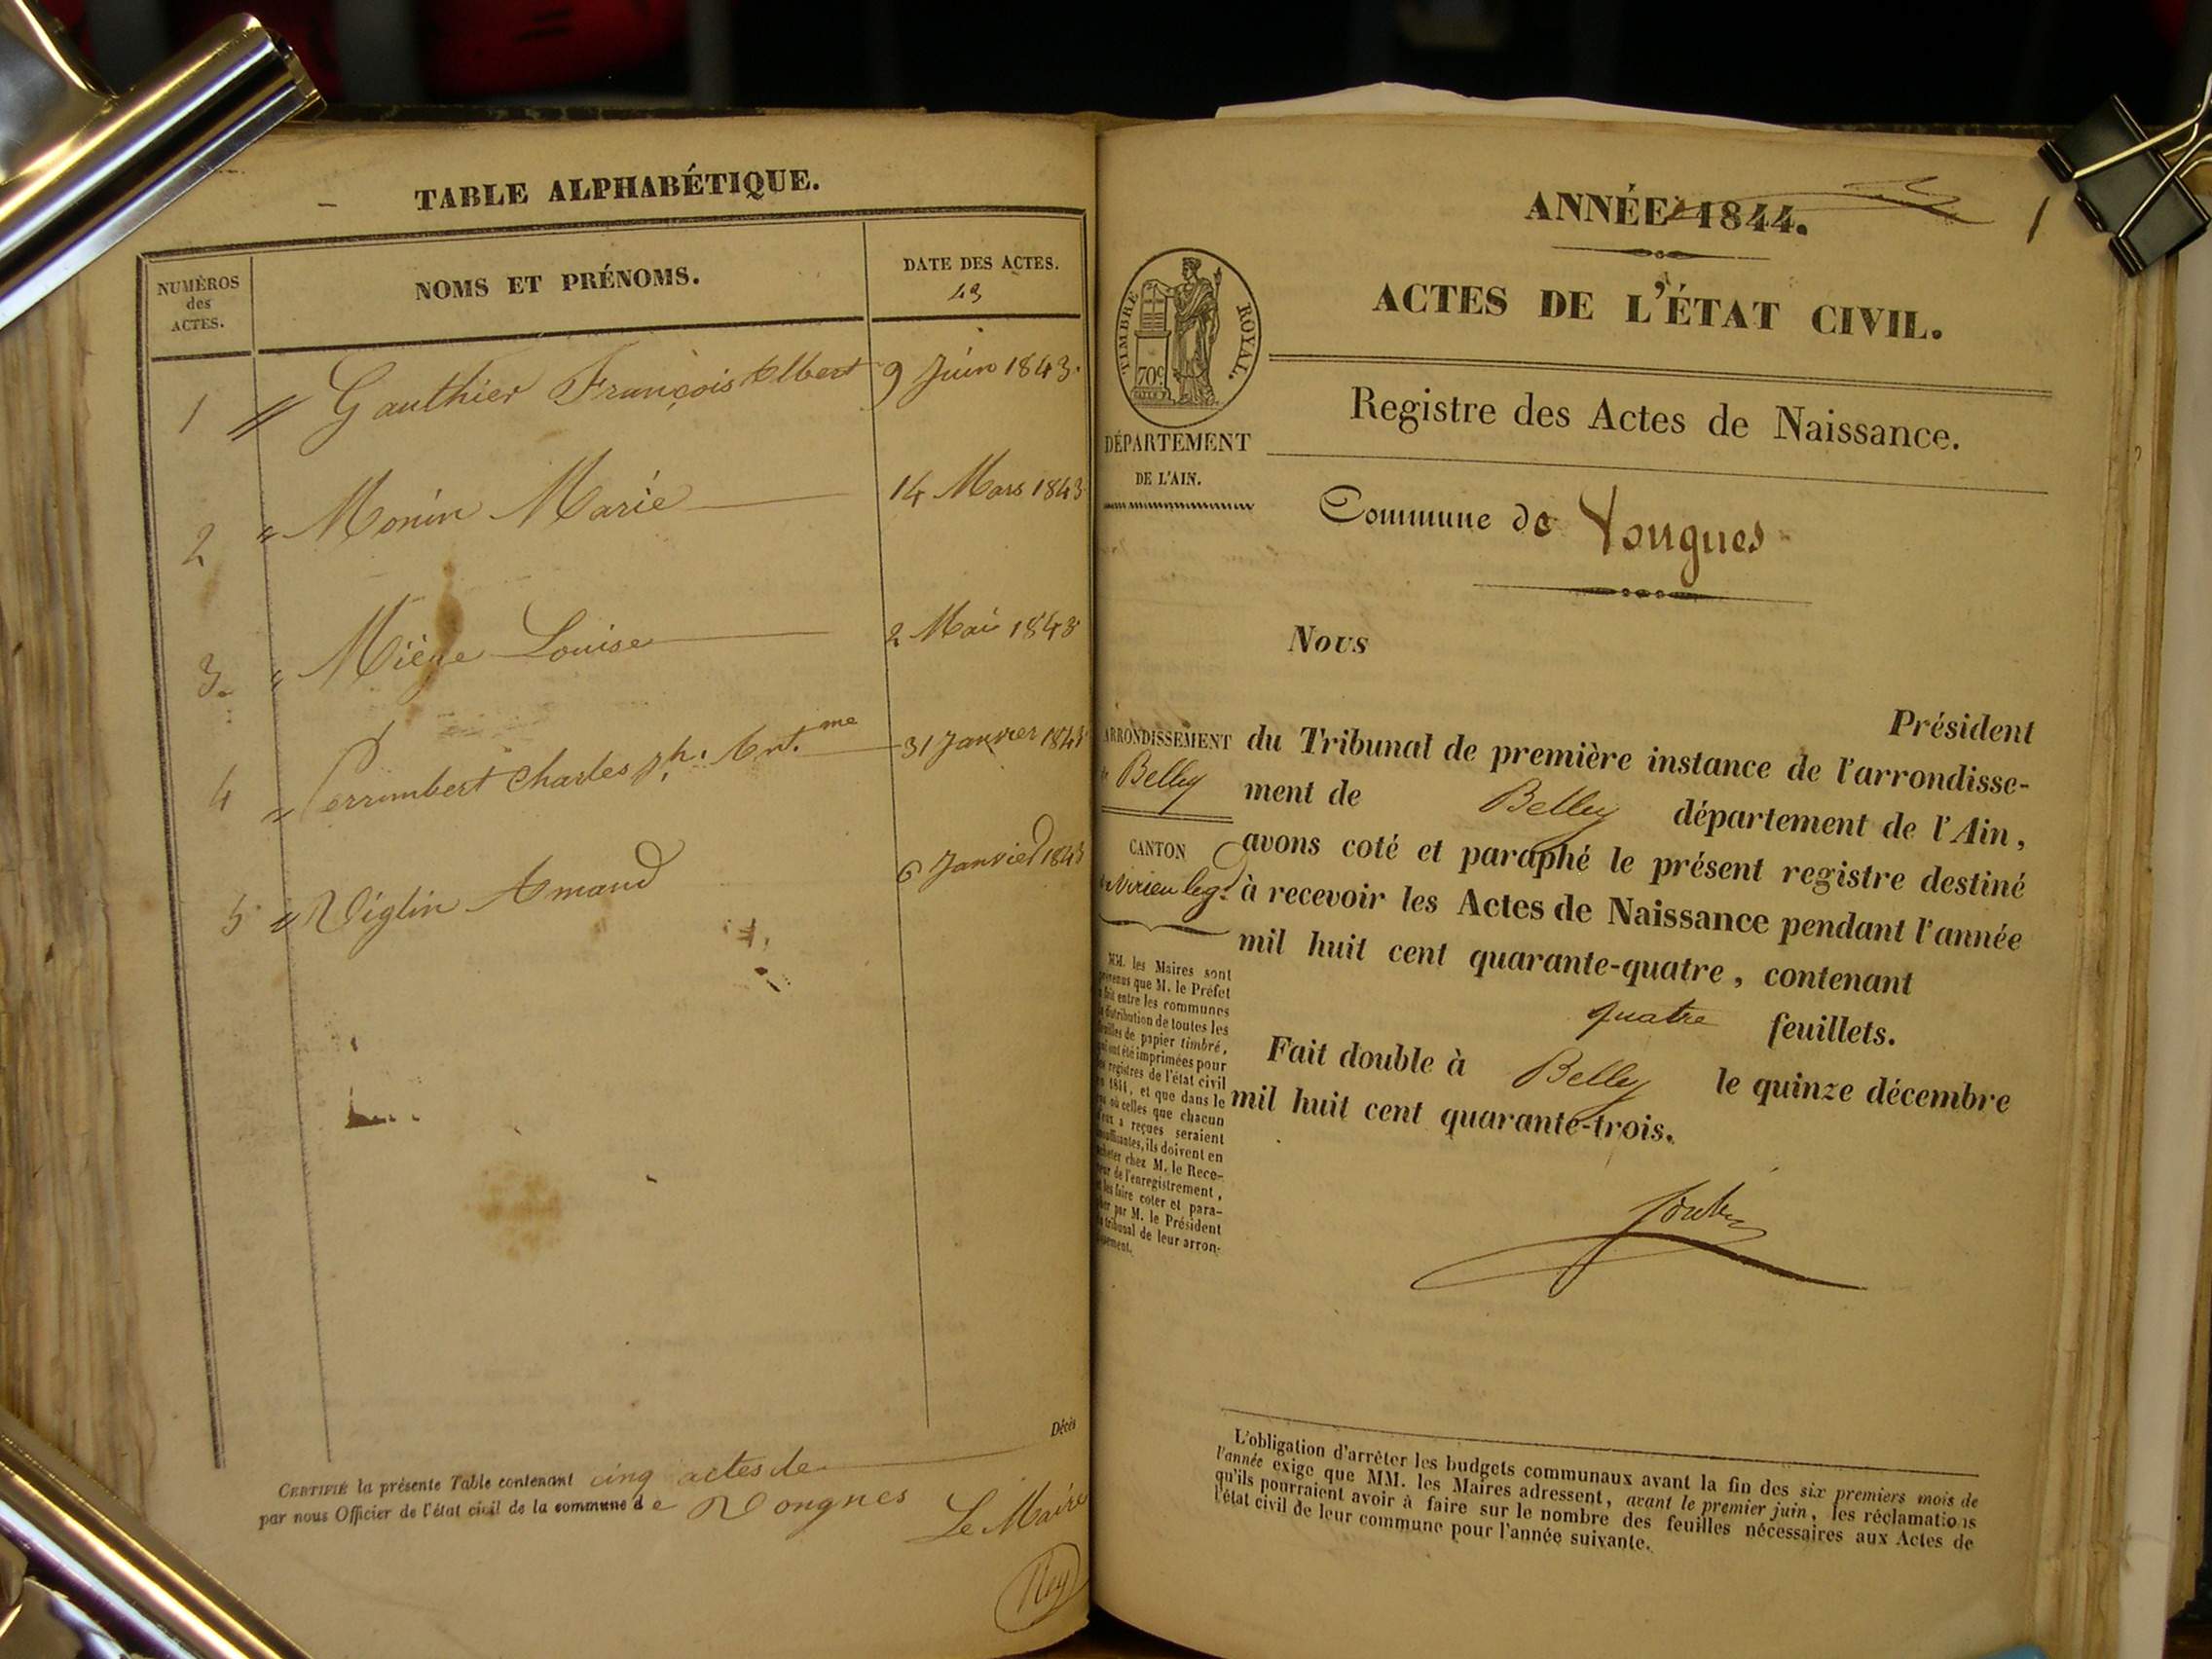 TABLE ALPHABÉTIQUE.
NUMÉROS
des
ACTES.
NOMS ET PRÉNOMS.
DATE DES ACTES.
43
1 " Gauthier François Albert 9 Juin 1843.
2 " Monin Marie 14 Mars 1843
3. " Miège Louise 2 Mai 1843
4 " Perrimbert Charles ph. Ant.me 31 Janvier 1843
5 " Viglin Amand 6 Janvier 1843
Décès
CERTIFIÉ la présente Table contenant cinq actes de
par nous Officier de l'état civil de la commune de Vongnes
Le Maire
Rey
1
ANNÉE 1844.
ACTES DE L'ÉTAT CIVIL.
TIMBRE ROYAL.
70c
DÉPARTEMENT
DE L'AIN.
Registre des Actes de Naissance.
Commune de Vongnes
Nous
Président
ARRONDISSEMENT
de Belley
CANTON
de Virieu legd
du Tribunal de première instance de l'arrondisse-
ment de Belley département de l'Ain,
avons coté et paraphé le présent registre destiné
à recevoir les Actes de Naissance pendant l'année
mil huit cent quarante-quatre, contenant
quatre feuillets.
Fait double à Belley le quinze décembre
mil huit cent quarante-trois.
MM. les Maires sont
prévenus que M. le Préfet
a fait entre les communes
la distribution de toutes les
feuilles de papier timbré,
qui ont été imprimées pour
les registres de l'état civil
en 1844, et que dans le
cas où celles que chacun
d'eux a reçues seraient
insuffisantes, ils doivent en
acheter chez M. le Rece-
veur de l'enregistrement,
et les faire coter et para-
pher par M. le Président
du tribunal de leur arron-
dissement.
L'obligation d'arrêter les budgets communaux avant la fin des six premiers mois de
l'année exige que MM. les Maires adressent, avant le premier juin, les réclamations
qu'ils pourraient avoir à faire sur le nombre des feuilles nécessaires aux Actes de
l'état civil de leur commune pour l'année suivante.